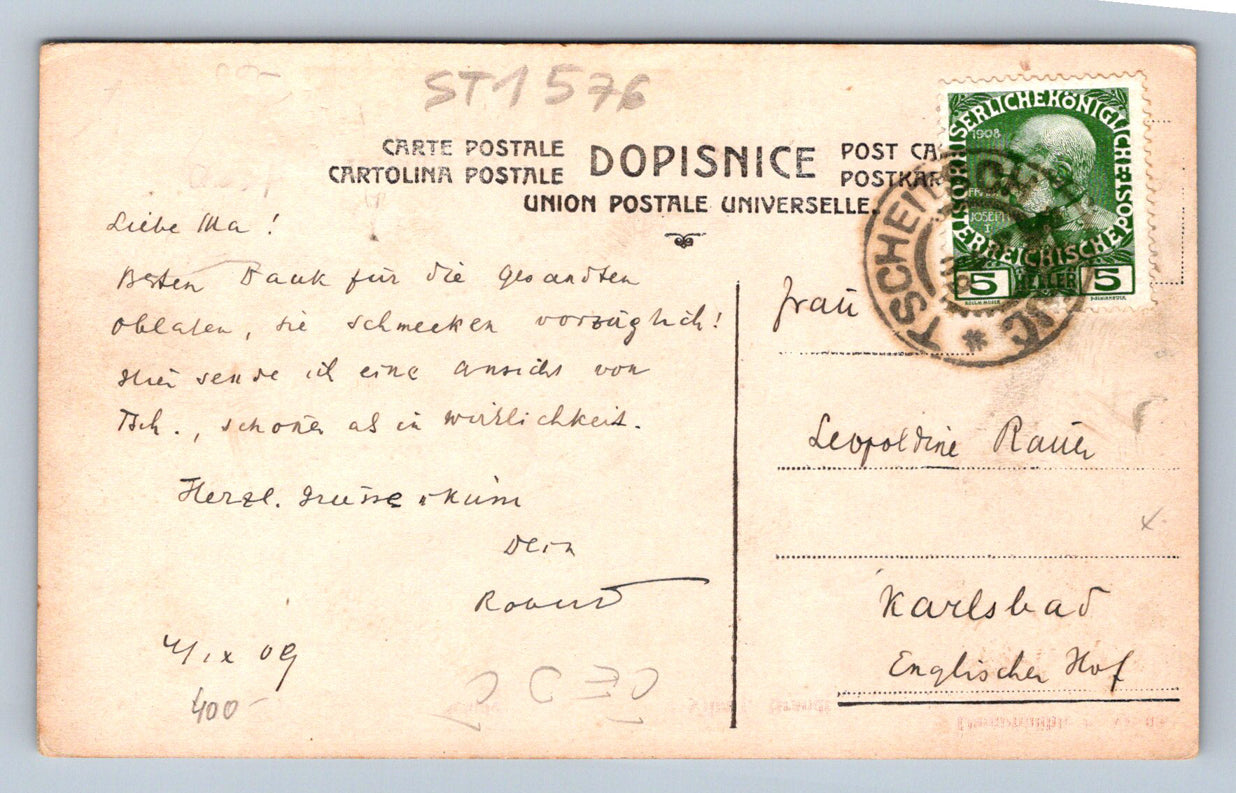 ST1576
CARTE POSTALE
CARTOLINA POSTALE
DOPISNICE
POST CA
POSTKAR
UNION POSTALE UNIVERSELLE.
KAISERLICHE KÖNIGLICHE ÖSTERREICHISCHE POST
1908
FRANZ
JOSEPH
I
5 HELLER 5
TSCHEITSCH
Liebe Ma!
Besten Dank für die gesandten
Oblaten, sie schmecken vorzüglich!
Hier sende ich eine Ansicht von
Tsch., schöner als in Wirklichkeit.
Herzl. Grüsse u Küsse
Dein
Robert
4/IX 09
400-
Frau
Leopoldine Rauer
Karlsbad
Englischer Hof